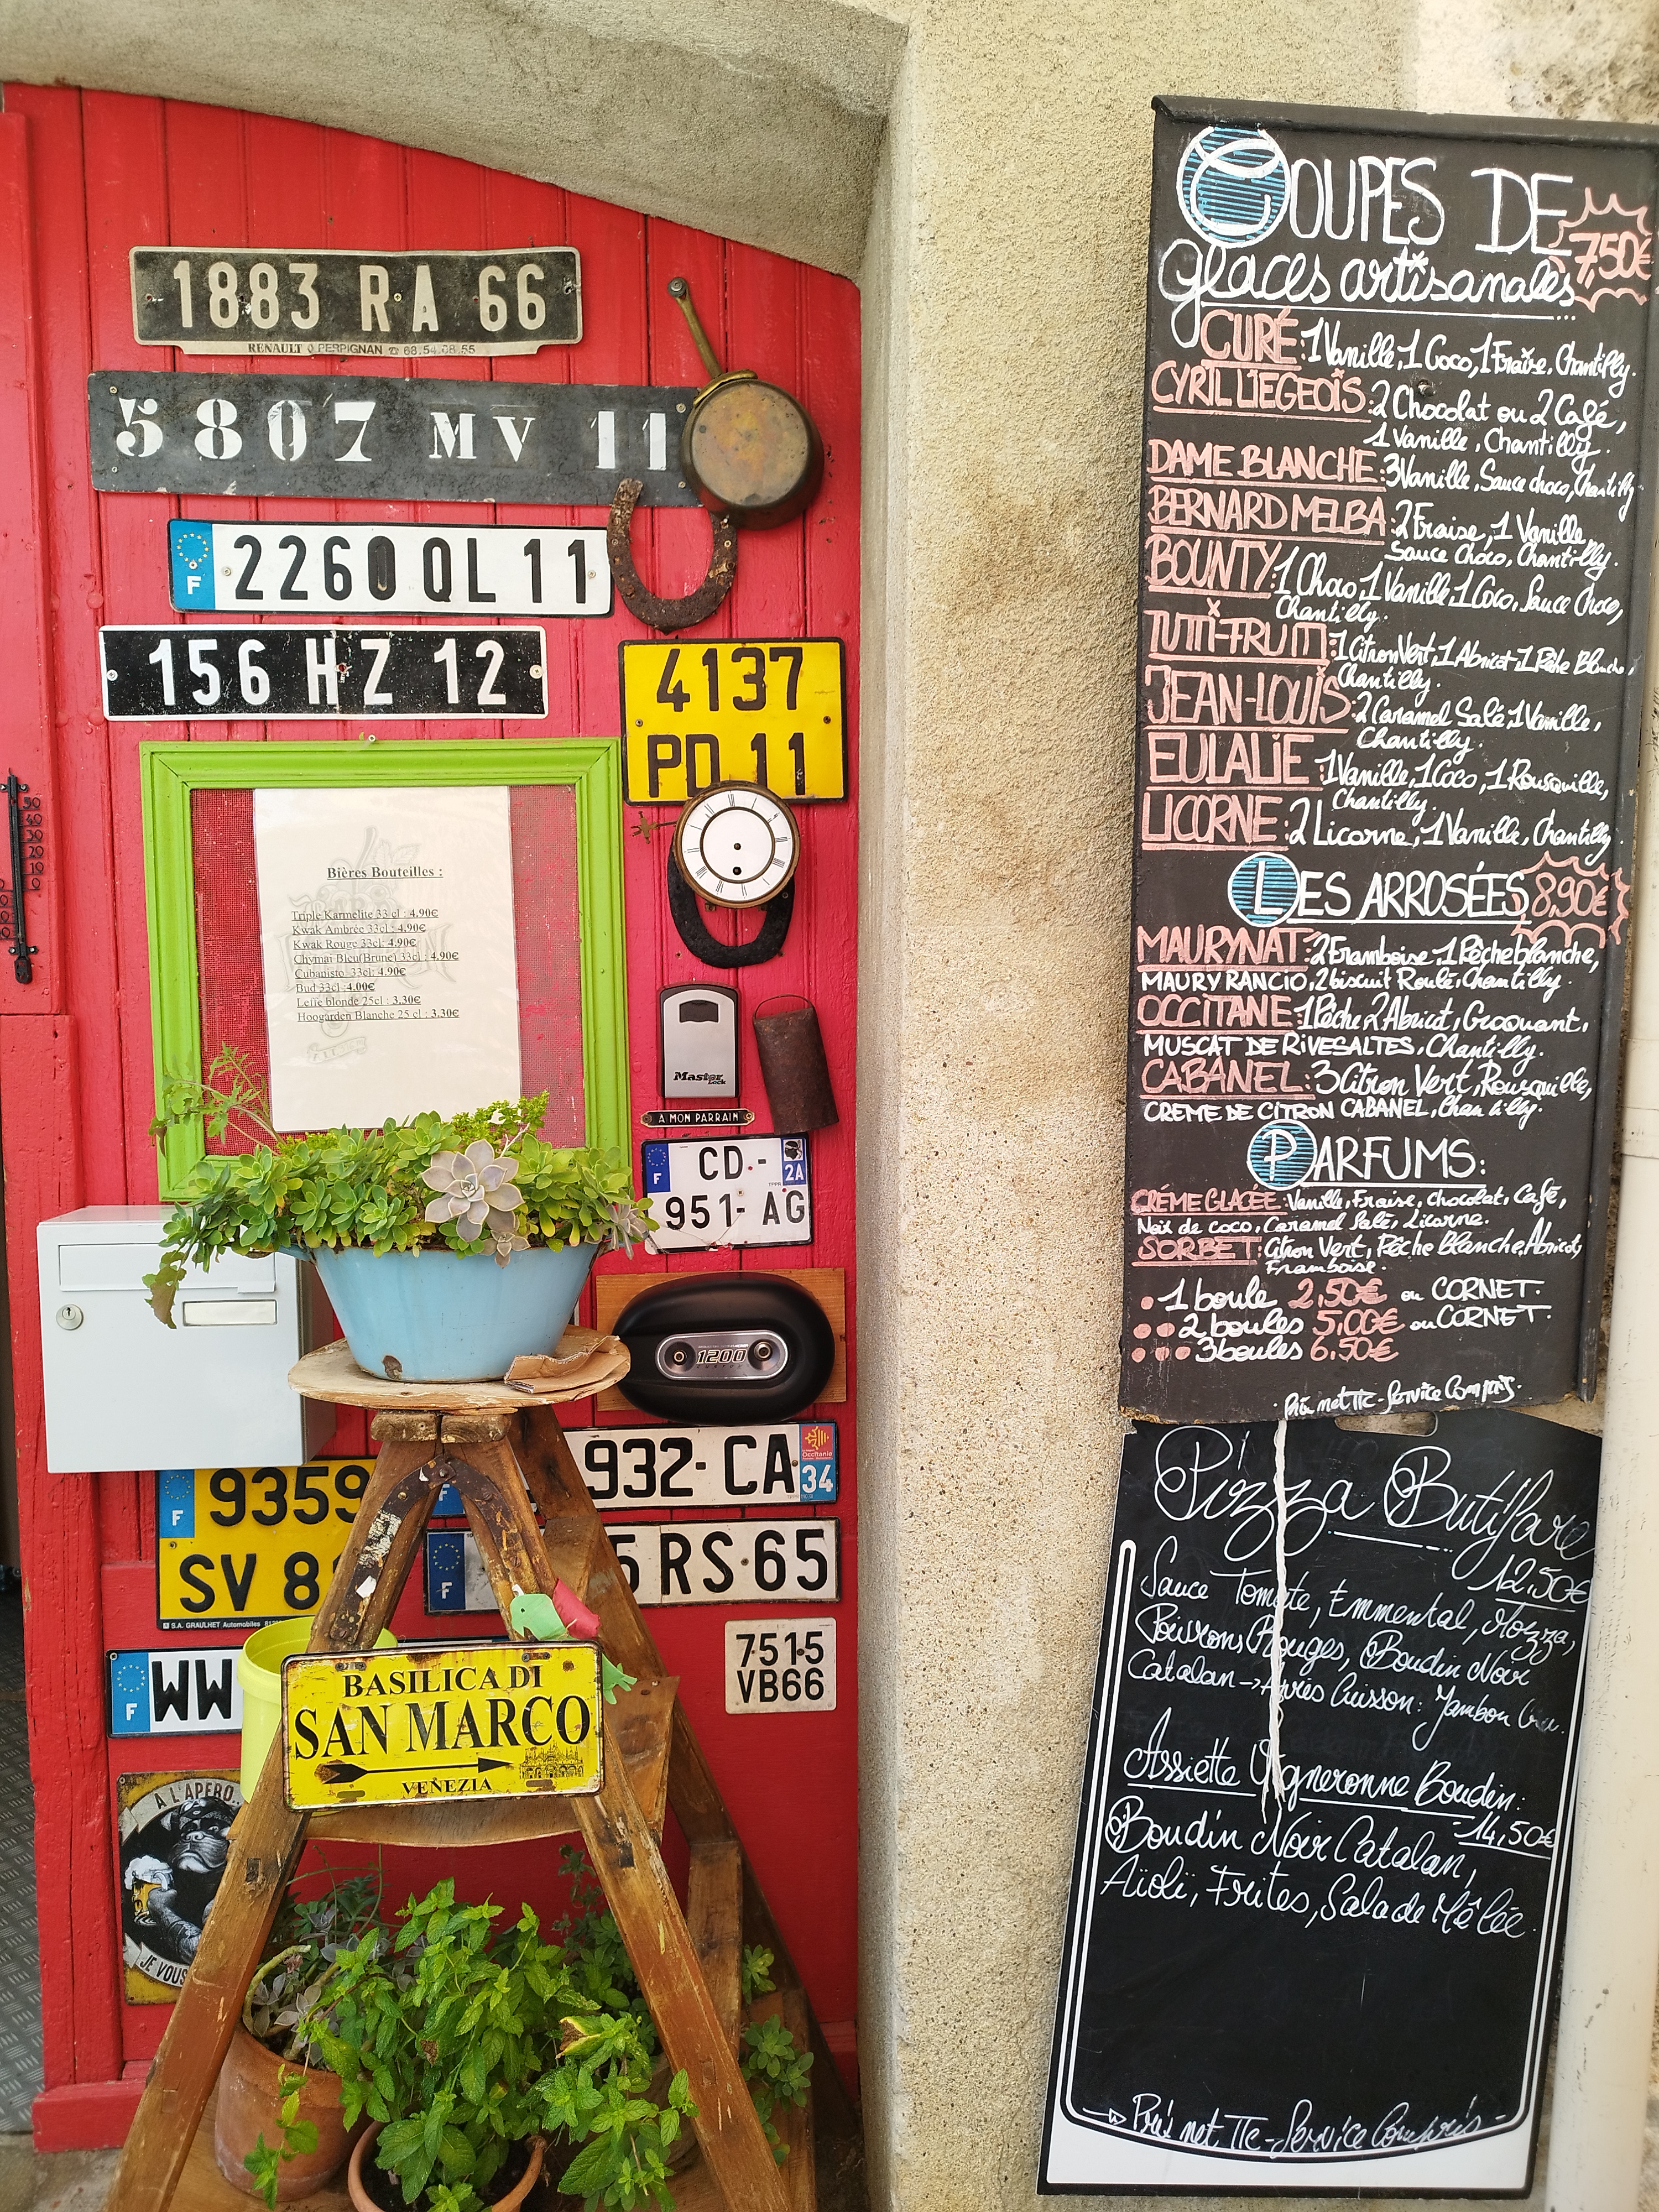 1883 RA 66
RENAULT PERPIGNAN ☎ 68.54.08.55
5807 MV 11
F 2260 QL 11
156 HZ 12
4137
PD 11
50
40
30
20
10
0
10
Bières Bouteilles :
Triple Karmelite 33 cl : 4.90€
Kwak Ambrée 33cl : 4.90€
Kwak Rouge 33cl : 4.90€
Chymai Bleu(Brune) 33cl : 4.90€
Cubanisto 33cl: 4.90€
Bud 33cl :4.00€
Leffe blonde 25cl : 3.30€
Hoogarden Blanche 25 cl : 3.30€
Master
Lock
A MON PARRAIN
F CD - 2A
951- AG
1200
932- CA 34
Occitanie
F 9359
SV 8
S.A. GRAULHET Automobiles
F 5 RS 65
7515
VB66
F WW
BASILICA DI
SAN MARCO
VENEZIA
A L'APÉRO...
JE VOUS
COUPES DE
7,50€
glaces artisanales
CURÉ: 1 Vanille, 1 Coco, 1 Fraise, Chantilly.
CYRIL LIEGEOIS: 2 Chocolat ou 2 Café,
1 Vanille, Chantilly.
DAME BLANCHE: 3 Vanille, Sauce choco, Chantilly
BERNARD MELBA: 2 Fraise, 1 Vanille,
Sauce Choco, Chantilly.
BOUNTY: 1 Choco, 1 Vanille, 1 Coco, Sauce Choco,
Chantilly.
TUTTI-FRUTTI: 1 Citron Vert, 1 Abricot, 1 Pêche Blanche,
Chantilly.
JEAN-LOUIS: 2 Caramel Salé, 1 Vanille,
Chantilly.
EULALIE: 1 Vanille, 1 Coco, 1 Rousquille,
Chantilly.
LICORNE: 2 Licorne, 1 Vanille, Chantilly.
LES ARROSÉES 8,90€
MAURYNAT: 2 Framboise, 1 Pêche blanche,
MAURY RANCIO, 2 biscuit Roulé, Chantilly.
OCCITANE: 1 Pêche, 2 Abricot, Croquant,
MUSCAT DE RIVESALTES, Chantilly.
CABANEL: 3 Citron Vert, Rousquille,
CREME DE CITRON CABANEL, Chantilly.
PARFUMS:
CRÉME GLACÉE: Vanille, Fraise, Chocolat, Café,
Noix de coco, Caramel Salé, Licorne.
SORBET: Citron Vert, Pêche Blanche, Abricot,
Framboise.
• 1 boule 2,50€ ou CORNET.
•• 2 boules 5,00€ ou CORNET.
••• 3 boules 6,50€
Prix net TTC - Service Compris.
Pizza Butifare
12,50€
Sauce Tomate, Emmental, Mozza,
Poivrons Rouges, Boudin Noir
Catalan -> Après Cuisson: Jambon Cru.
Assiette Vigneronne Boudin:
14,50€
Boudin Noir Catalan,
Aïoli, Frites, Salade Mêlée.
Prix net TTC - Service Compris